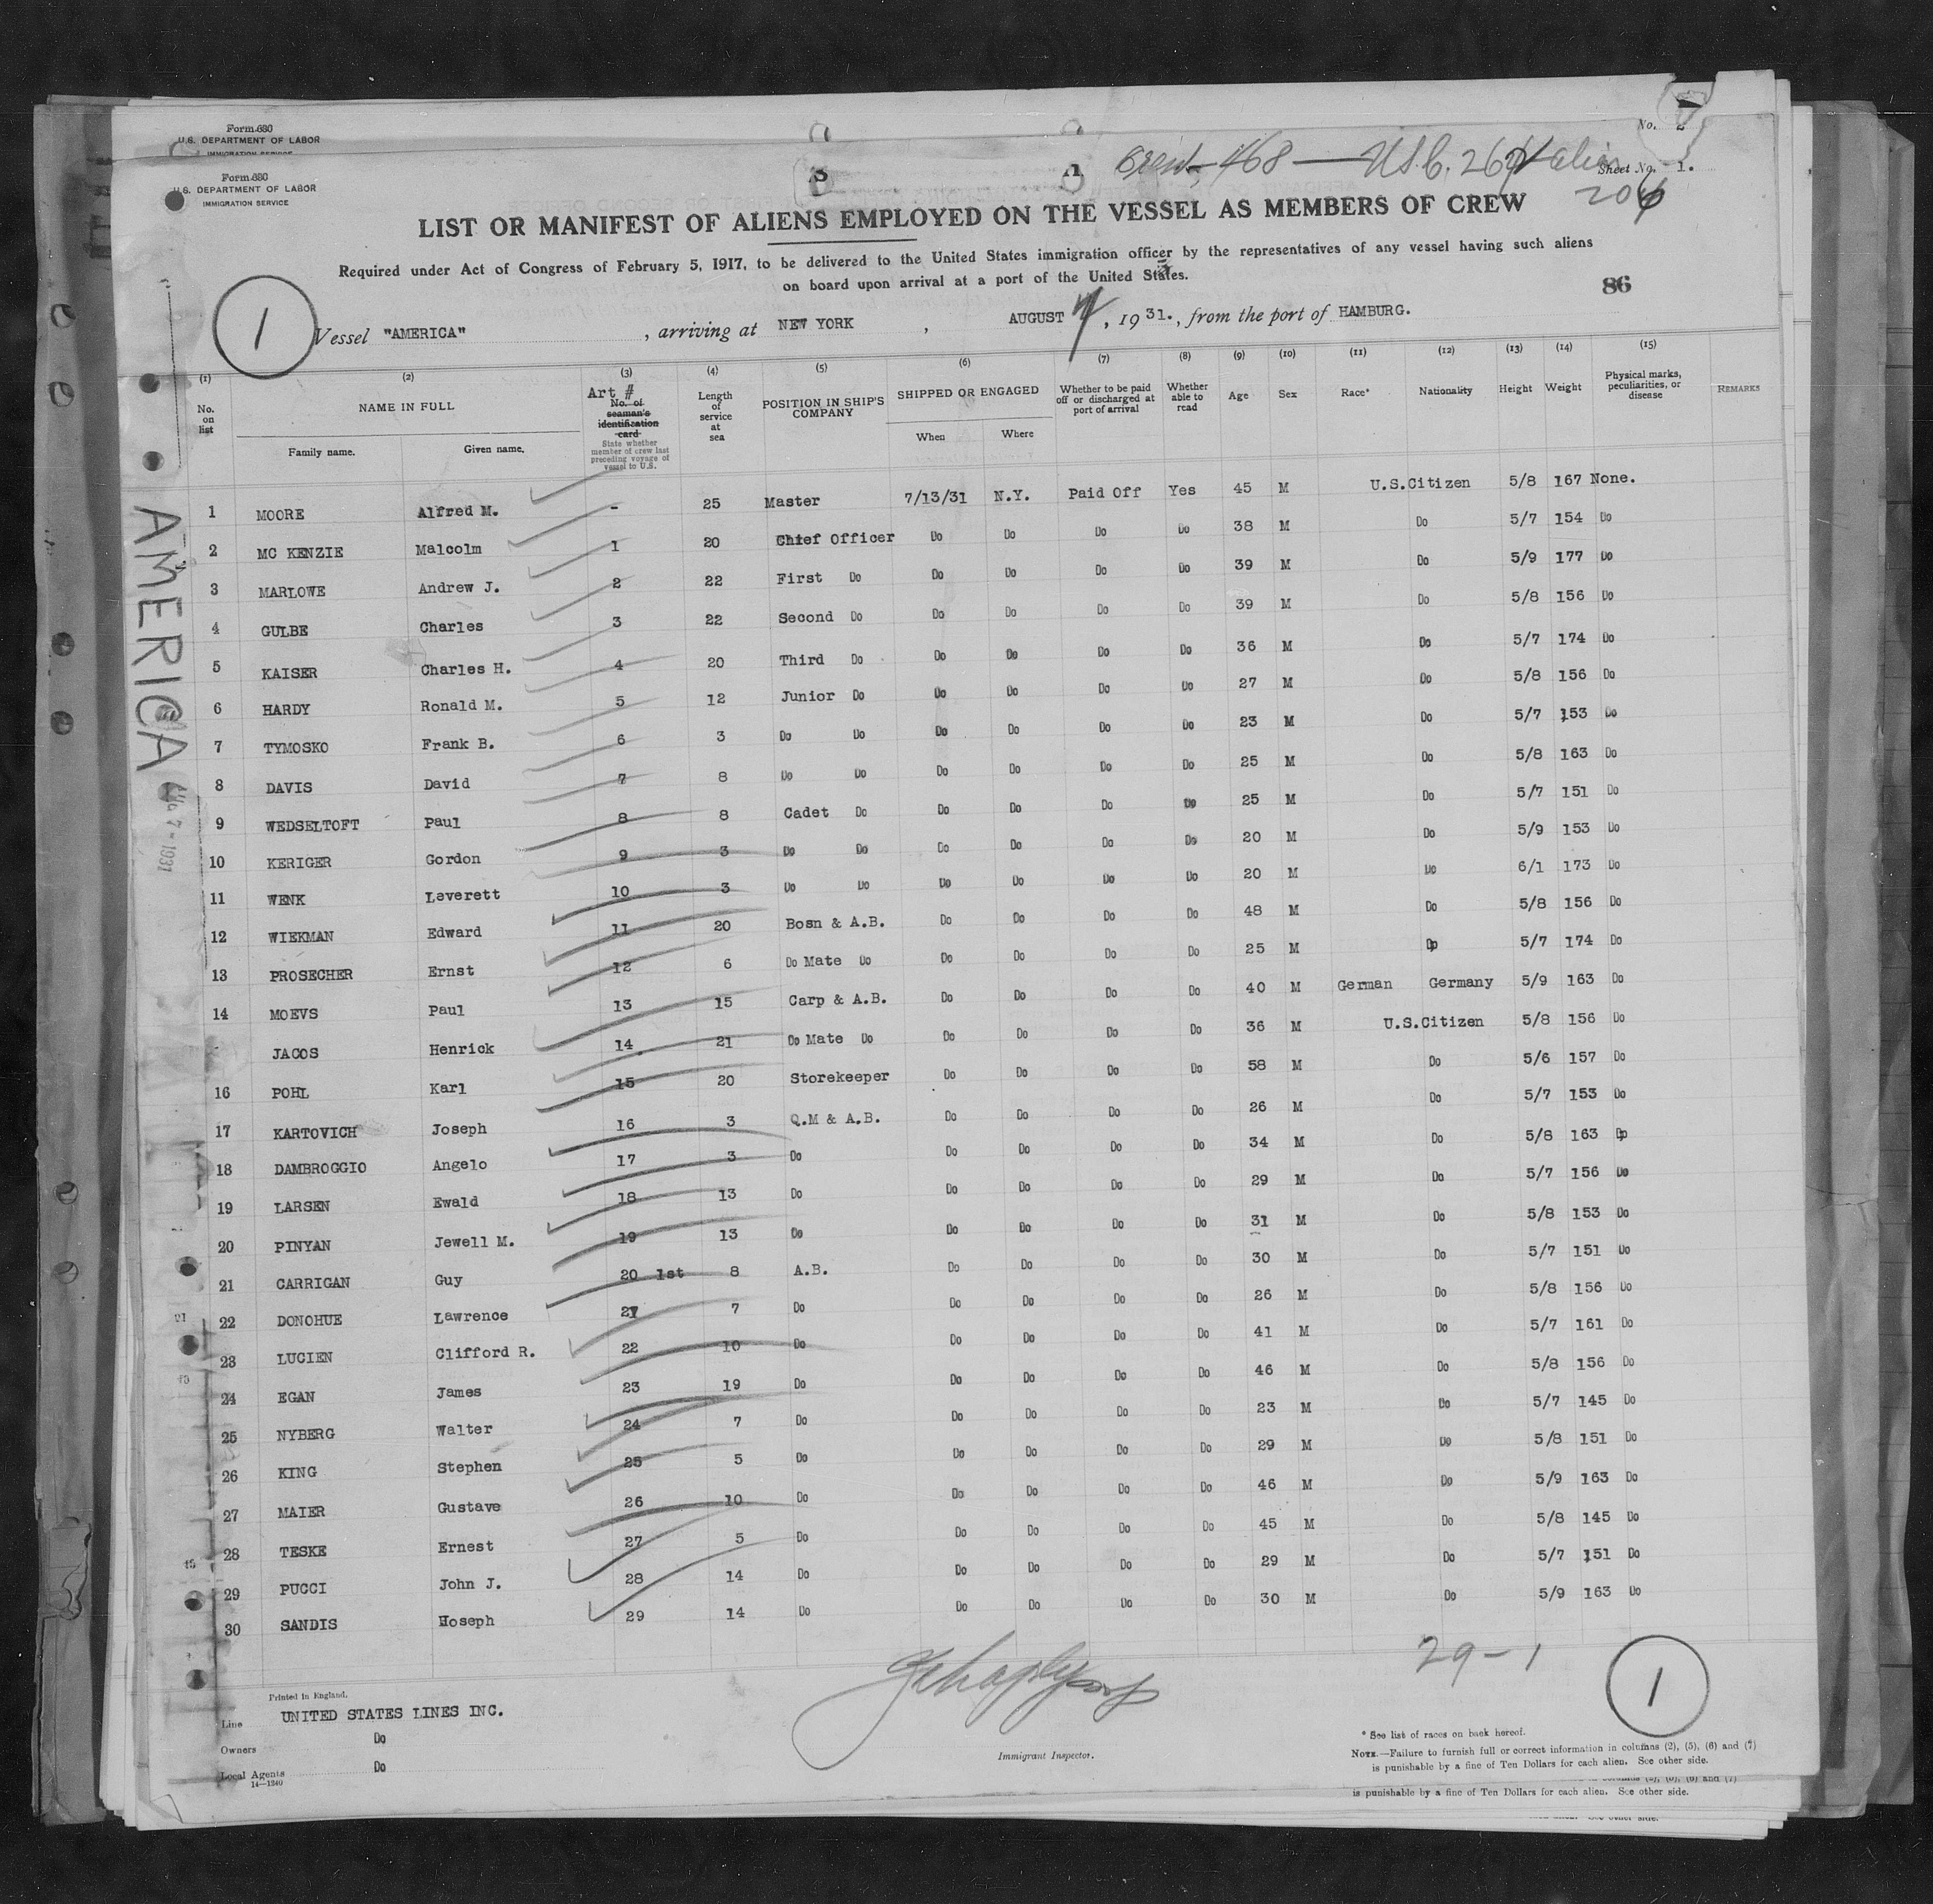 Form 680
U.S. DEPARTMENT OF LABOR
IMMIGRATION SERVICE
No.
Form 680
U.S. DEPARTMENT OF LABOR
IMMIGRATION SERVICE
Crew - 468 - U.S.C. 26
Sheet No. 1.
206
LIST OR MANIFEST OF ALIENS EMPLOYED ON THE VESSEL AS MEMBERS OF CREW
Required under Act of Congress of February 5, 1917, to be delivered to the United States immigration officer by the representatives of any vessel having such aliens
on board upon arrival at a port of the United States.
86
1
Vessel "AMERICA", arriving at NEW YORK, AUGUST 7, 1931., from the port of HAMBURG.
(1) (2) (3) (4) (5) (6) (7) (8) (9) (10) (11) (12) (13) (14) (15)
No. on list
NAME IN FULL
Family name. Given name.
Art #
No. of seaman's identification card
State whether member of crew last preceding voyage of vessel to U.S.
Length of service at sea
POSITION IN SHIP'S COMPANY
SHIPPED OR ENGAGED
When Where
Whether to be paid off or discharged at port of arrival
Whether able to read
Age
Sex
Race*
Nationality
Height
Weight
Physical marks, peculiarities, or disease
REMARKS
1 MOORE Alfred M. - 25 Master 7/13/31 N.Y. Paid Off Yes 45 M U.S.Citizen 5/8 167 None.
2 MC KENZIE Malcolm 1 20 Chief Officer Do Do Do Do 38 M Do 5/7 154 Do
3 MARLOWE Andrew J. 2 22 First Do Do Do Do Do 39 M Do 5/9 177 Do
4 GULBE Charles 3 22 Second Do Do Do Do Do 39 M Do 5/8 156 Do
5 KAISER Charles H. 4 20 Third Do Do Do Do Do 36 M Do 5/7 174 Do
6 HARDY Ronald M. 5 12 Junior Do Do Do Do Do 27 M Do 5/8 156 Do
7 TYMOSKO Frank B. 6 3 Do Do Do Do Do Do 23 M Do 5/7 153 Do
8 DAVIS David 7 8 Do Do Do Do Do Do 25 M Do 5/8 163 Do
9 WEDSELTOFT Paul 8 8 Cadet Do Do Do Do Do 25 M Do 5/7 151 Do
10 KERIGER Gordon 9 3 Do Do Do Do Do Do 20 M Do 5/9 153 Do
11 WENK Leverett 10 3 Do Do Do Do Do Do 20 M Do 6/1 173 Do
12 WIEKMAN Edward 11 20 Bosn & A.B. Do Do Do Do 48 M Do 5/8 156 Do
13 PROSECHER Ernst 12 6 Do Mate Do Do Do Do Do 25 M Do 5/7 174 Do
14 MOEVS Paul 13 15 Carp & A.B. Do Do Do Do 40 M German Germany 5/9 163 Do
JACOS Henrick 14 21 Do Mate Do Do Do Do Do 36 M U.S.Citizen 5/8 156 Do
16 POHL Karl 15 20 Storekeeper Do Do Do Do 58 M Do 5/6 157 Do
17 KARTOVICH Joseph 16 3 Q.M & A.B. Do Do Do Do 26 M Do 5/7 153 Do
18 DAMBROGGIO Angelo 17 3 Do Do Do Do Do 34 M Do 5/8 163 Do
19 LARSEN Ewald 18 13 Do Do Do Do Do 29 M Do 5/7 156 Do
20 PINYAN Jewell M. 19 13 Do Do Do Do Do 31 M Do 5/8 153 Do
21 CARRIGAN Guy 20 1st 8 A.B. Do Do Do Do 30 M Do 5/7 151 Do
22 DONOHUE Lawrence 21 7 Do Do Do Do Do 26 M Do 5/8 156 Do
23 LUCIEN Clifford R. 22 10 Do Do Do Do Do 41 M Do 5/7 161 Do
24 EGAN James 23 19 Do Do Do Do Do 46 M Do 5/8 156 Do
25 NYBERG Walter 24 7 Do Do Do Do Do 23 M Do 5/7 145 Do
26 KING Stephen 25 5 Do Do Do Do Do 29 M Do 5/8 151 Do
27 MAIER Gustave 26 10 Do Do Do Do Do 46 M Do 5/9 163 Do
28 TESKE Ernest 27 5 Do Do Do Do Do 45 M Do 5/8 145 Do
29 PUCCI John J. 28 14 Do Do Do Do Do 29 M Do 5/7 151 Do
30 SANDIS Hoseph 29 14 Do Do Do Do Do 30 M Do 5/9 163 Do
AMERICA
29-1
1
Printed in England.
Line UNITED STATES LINES INC.
Owners Do
Local Agents Do
14-1240
Immigrant Inspector.
* See list of races on back hereof.
NOTE.—Failure to furnish full or correct information in columns (2), (5), (6) and (7)
is punishable by a fine of Ten Dollars for each alien. See other side.
is punishable by a fine of Ten Dollars for each alien. See other side.